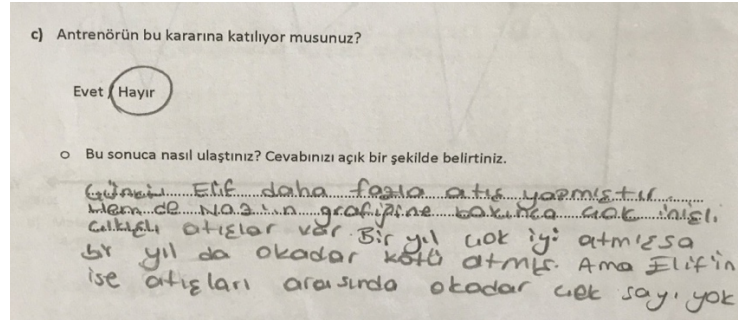 c) Antrenörün bu kararına katılıyor musunuz?
Evet / Hayır
o Bu sonuca nasıl ulaştınız? Cevabınızı açık bir şekilde belirtiniz.
Çünkü Elif daha fazla atış yapmıştır.
Hem de Nazın grafiğine bakınca çok inişli
çıkışlı atışlar var. Bir yıl çok iyi atmışsa
bir yıl da okadar kötü atmış. Ama Elif'in
ise atışları arasında okadar çok sayı yok